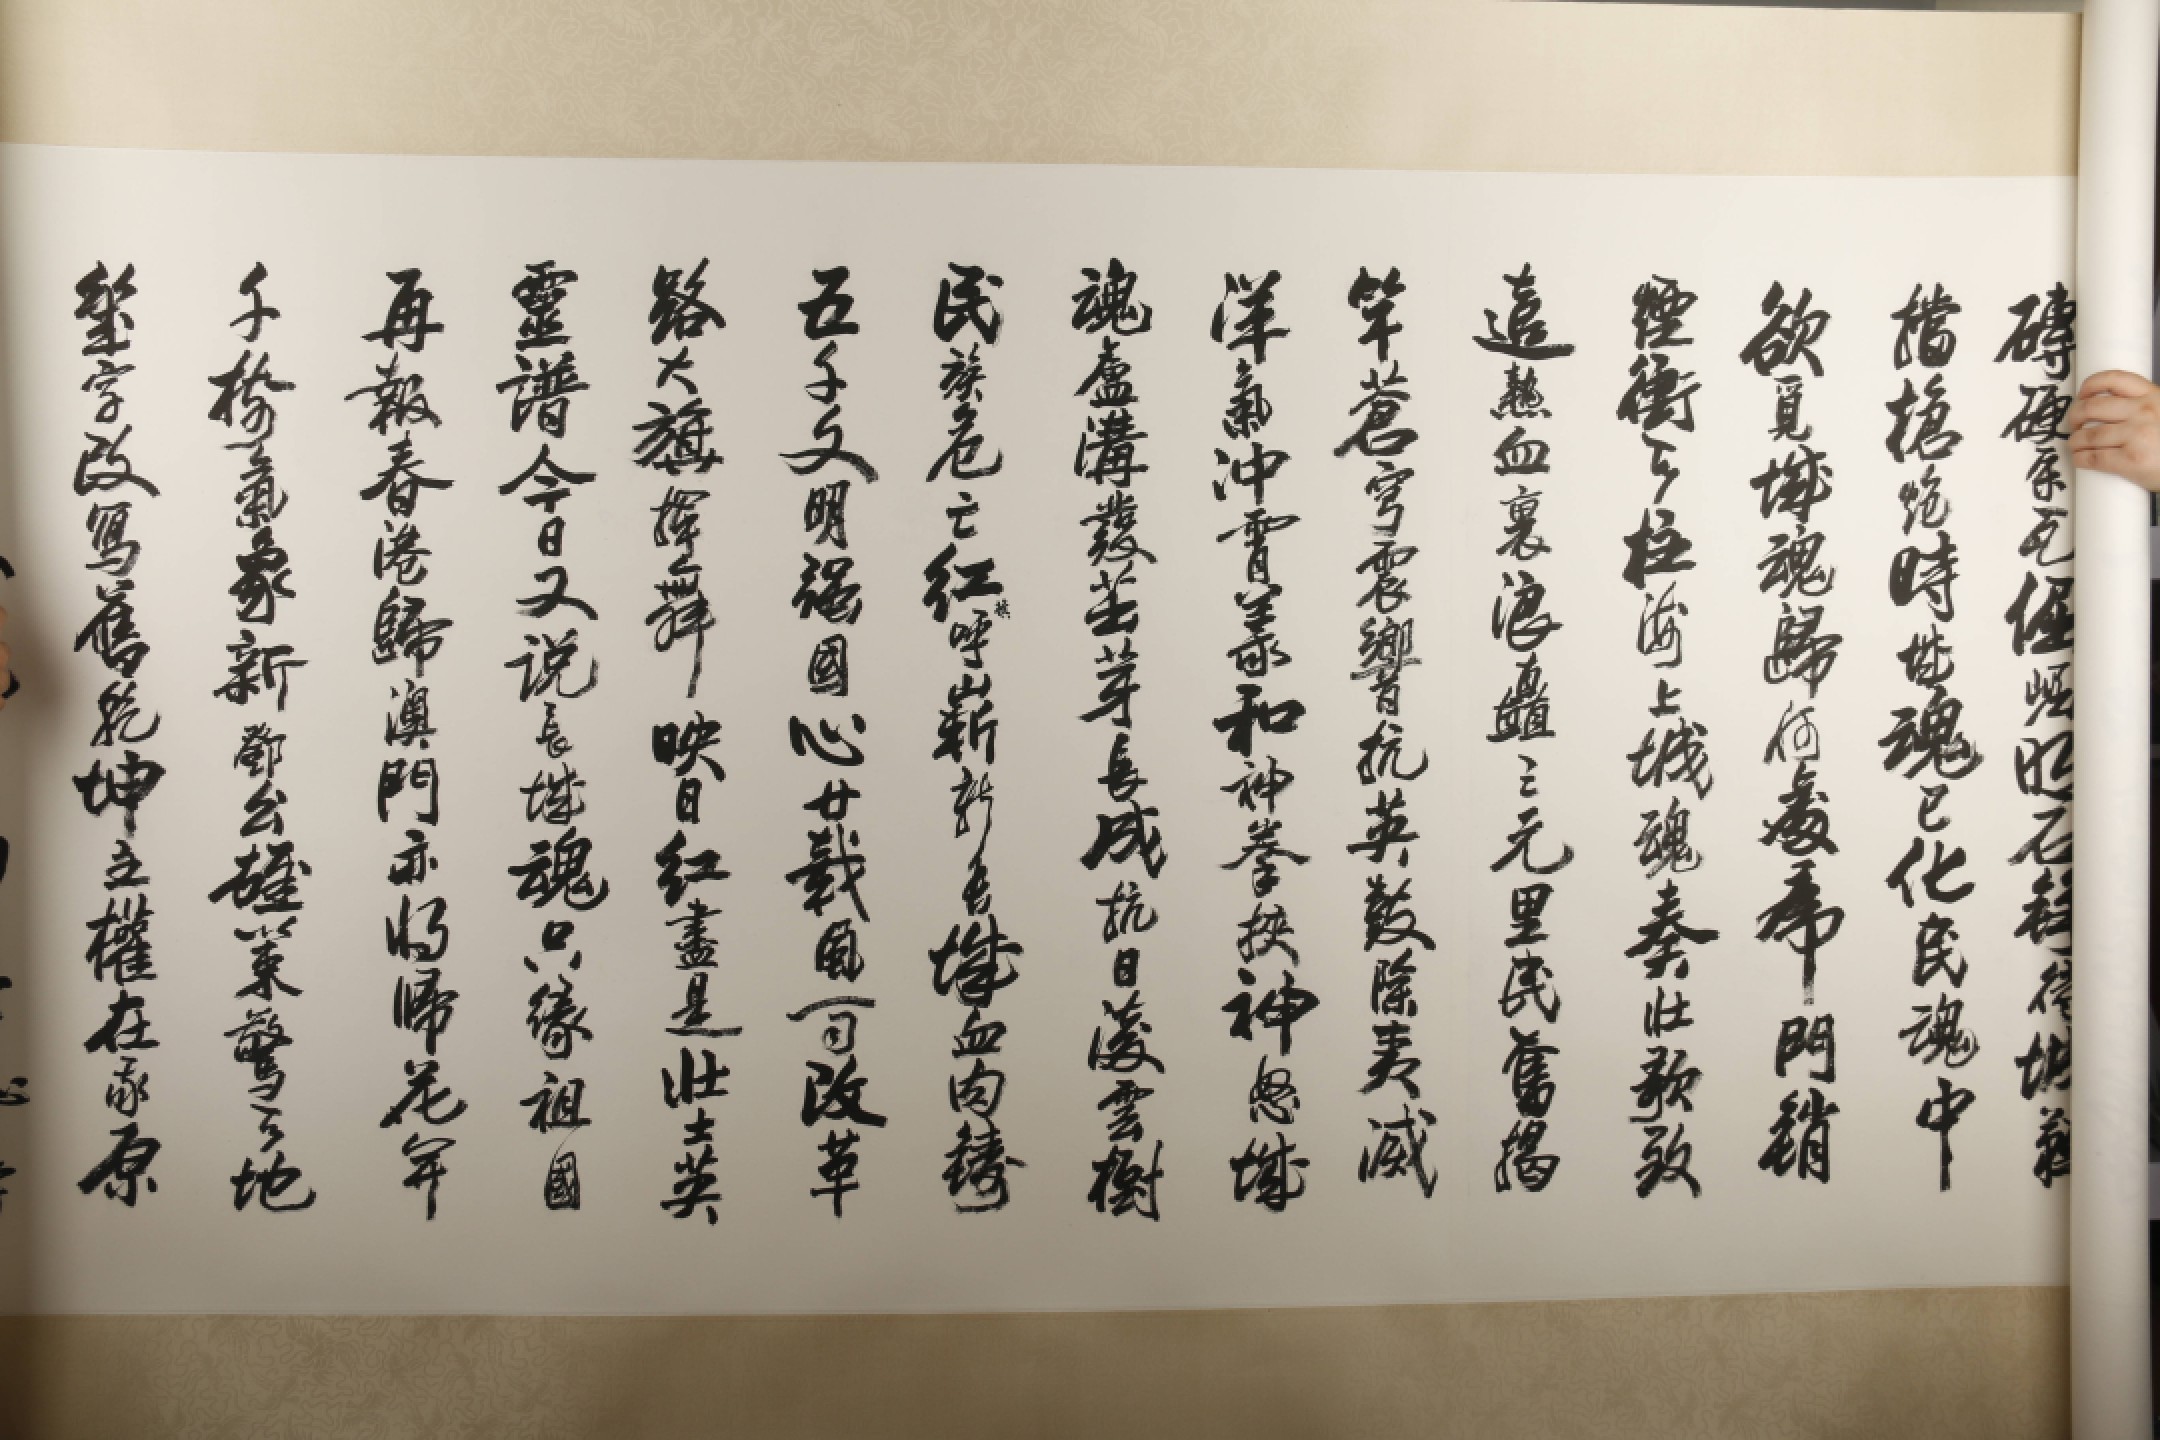 磚硬瓦倔崛石城
擋槍炮時城魂已化民魂中
欲覓城魂歸何處虎門銷
煙衝天柱海上城魂奏壯歌致
遠熱血裏浪矗三元里民奮揭
竿蒼穹震響抗英鼓除夷滅
洋氣沖霄義和神拳挾神怒城
魂盧溝發茁芽長成抗日凌雲樹
民族危亡紅呼嶄新長城血肉鑄
五千文明強國心廿載風雨改革
路大旗揮舞映日紅盡是壯士英
靈譜今日又说長城魂只緣祖國
再報春港歸澳門亦將歸花年
千橋氣象新鄧公雄策驚天地
壐字改寫舊乾坤主權在家原